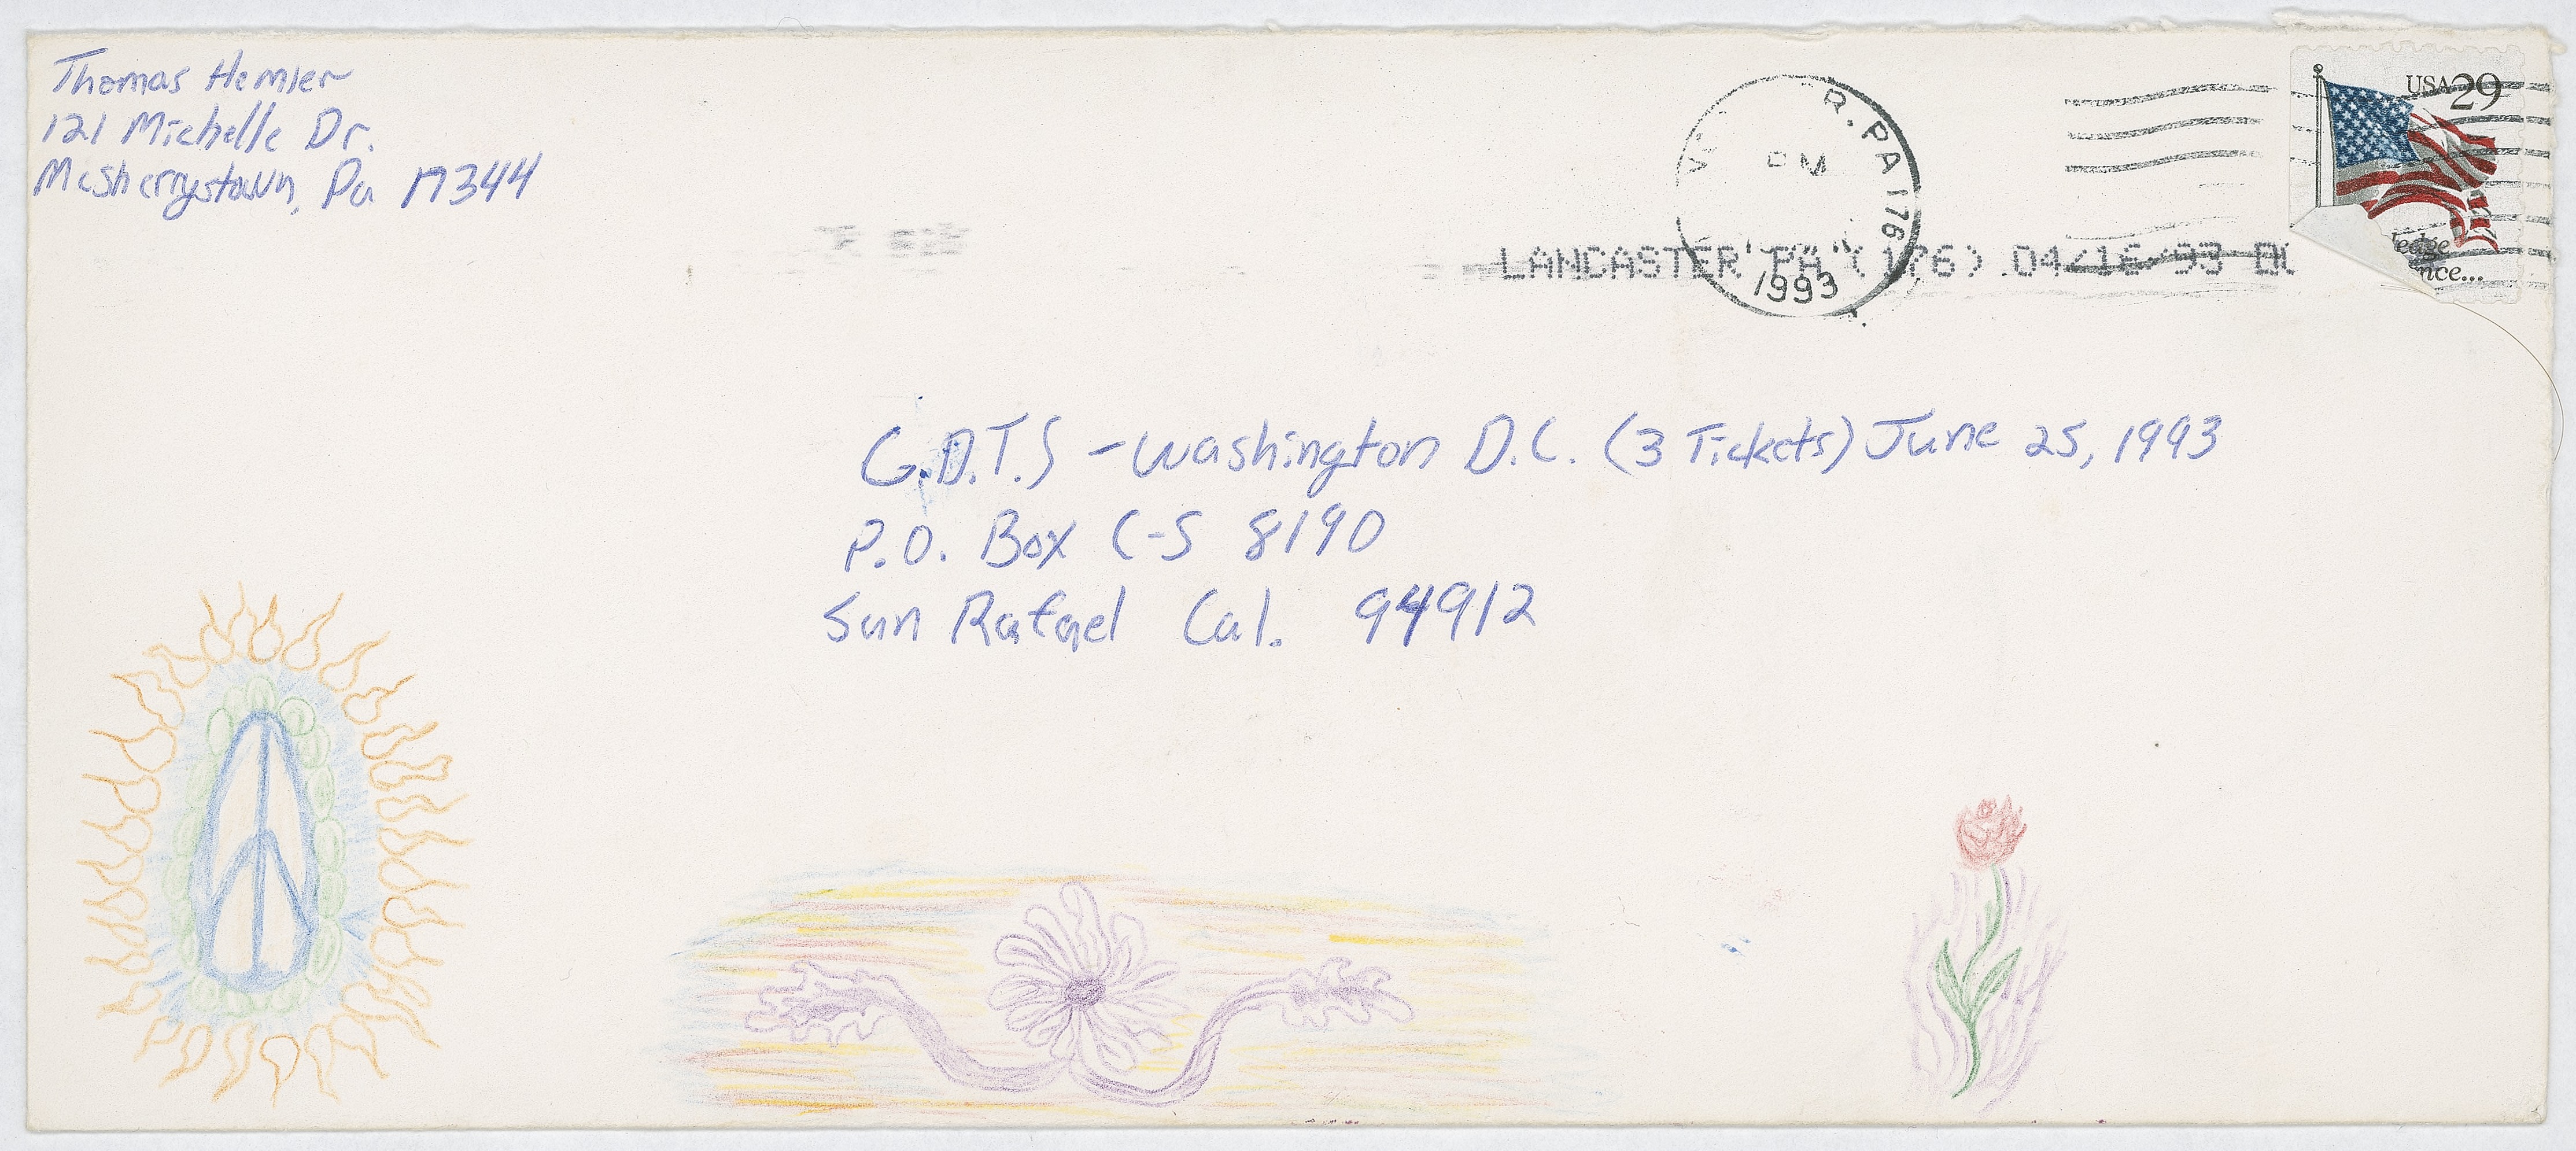 Thomas Hemler
121 Michelle Dr.
McSherrystown, Pa 17344
R. PA 176
PM
1993
USA 29
LANCASTER PA (176) 04/16/93
ledge
nce...
G.D.T.S - Washington D.C. (3 Tickets) June 25, 1993
P.O. Box C-S 8190
San Rafael Cal. 94912